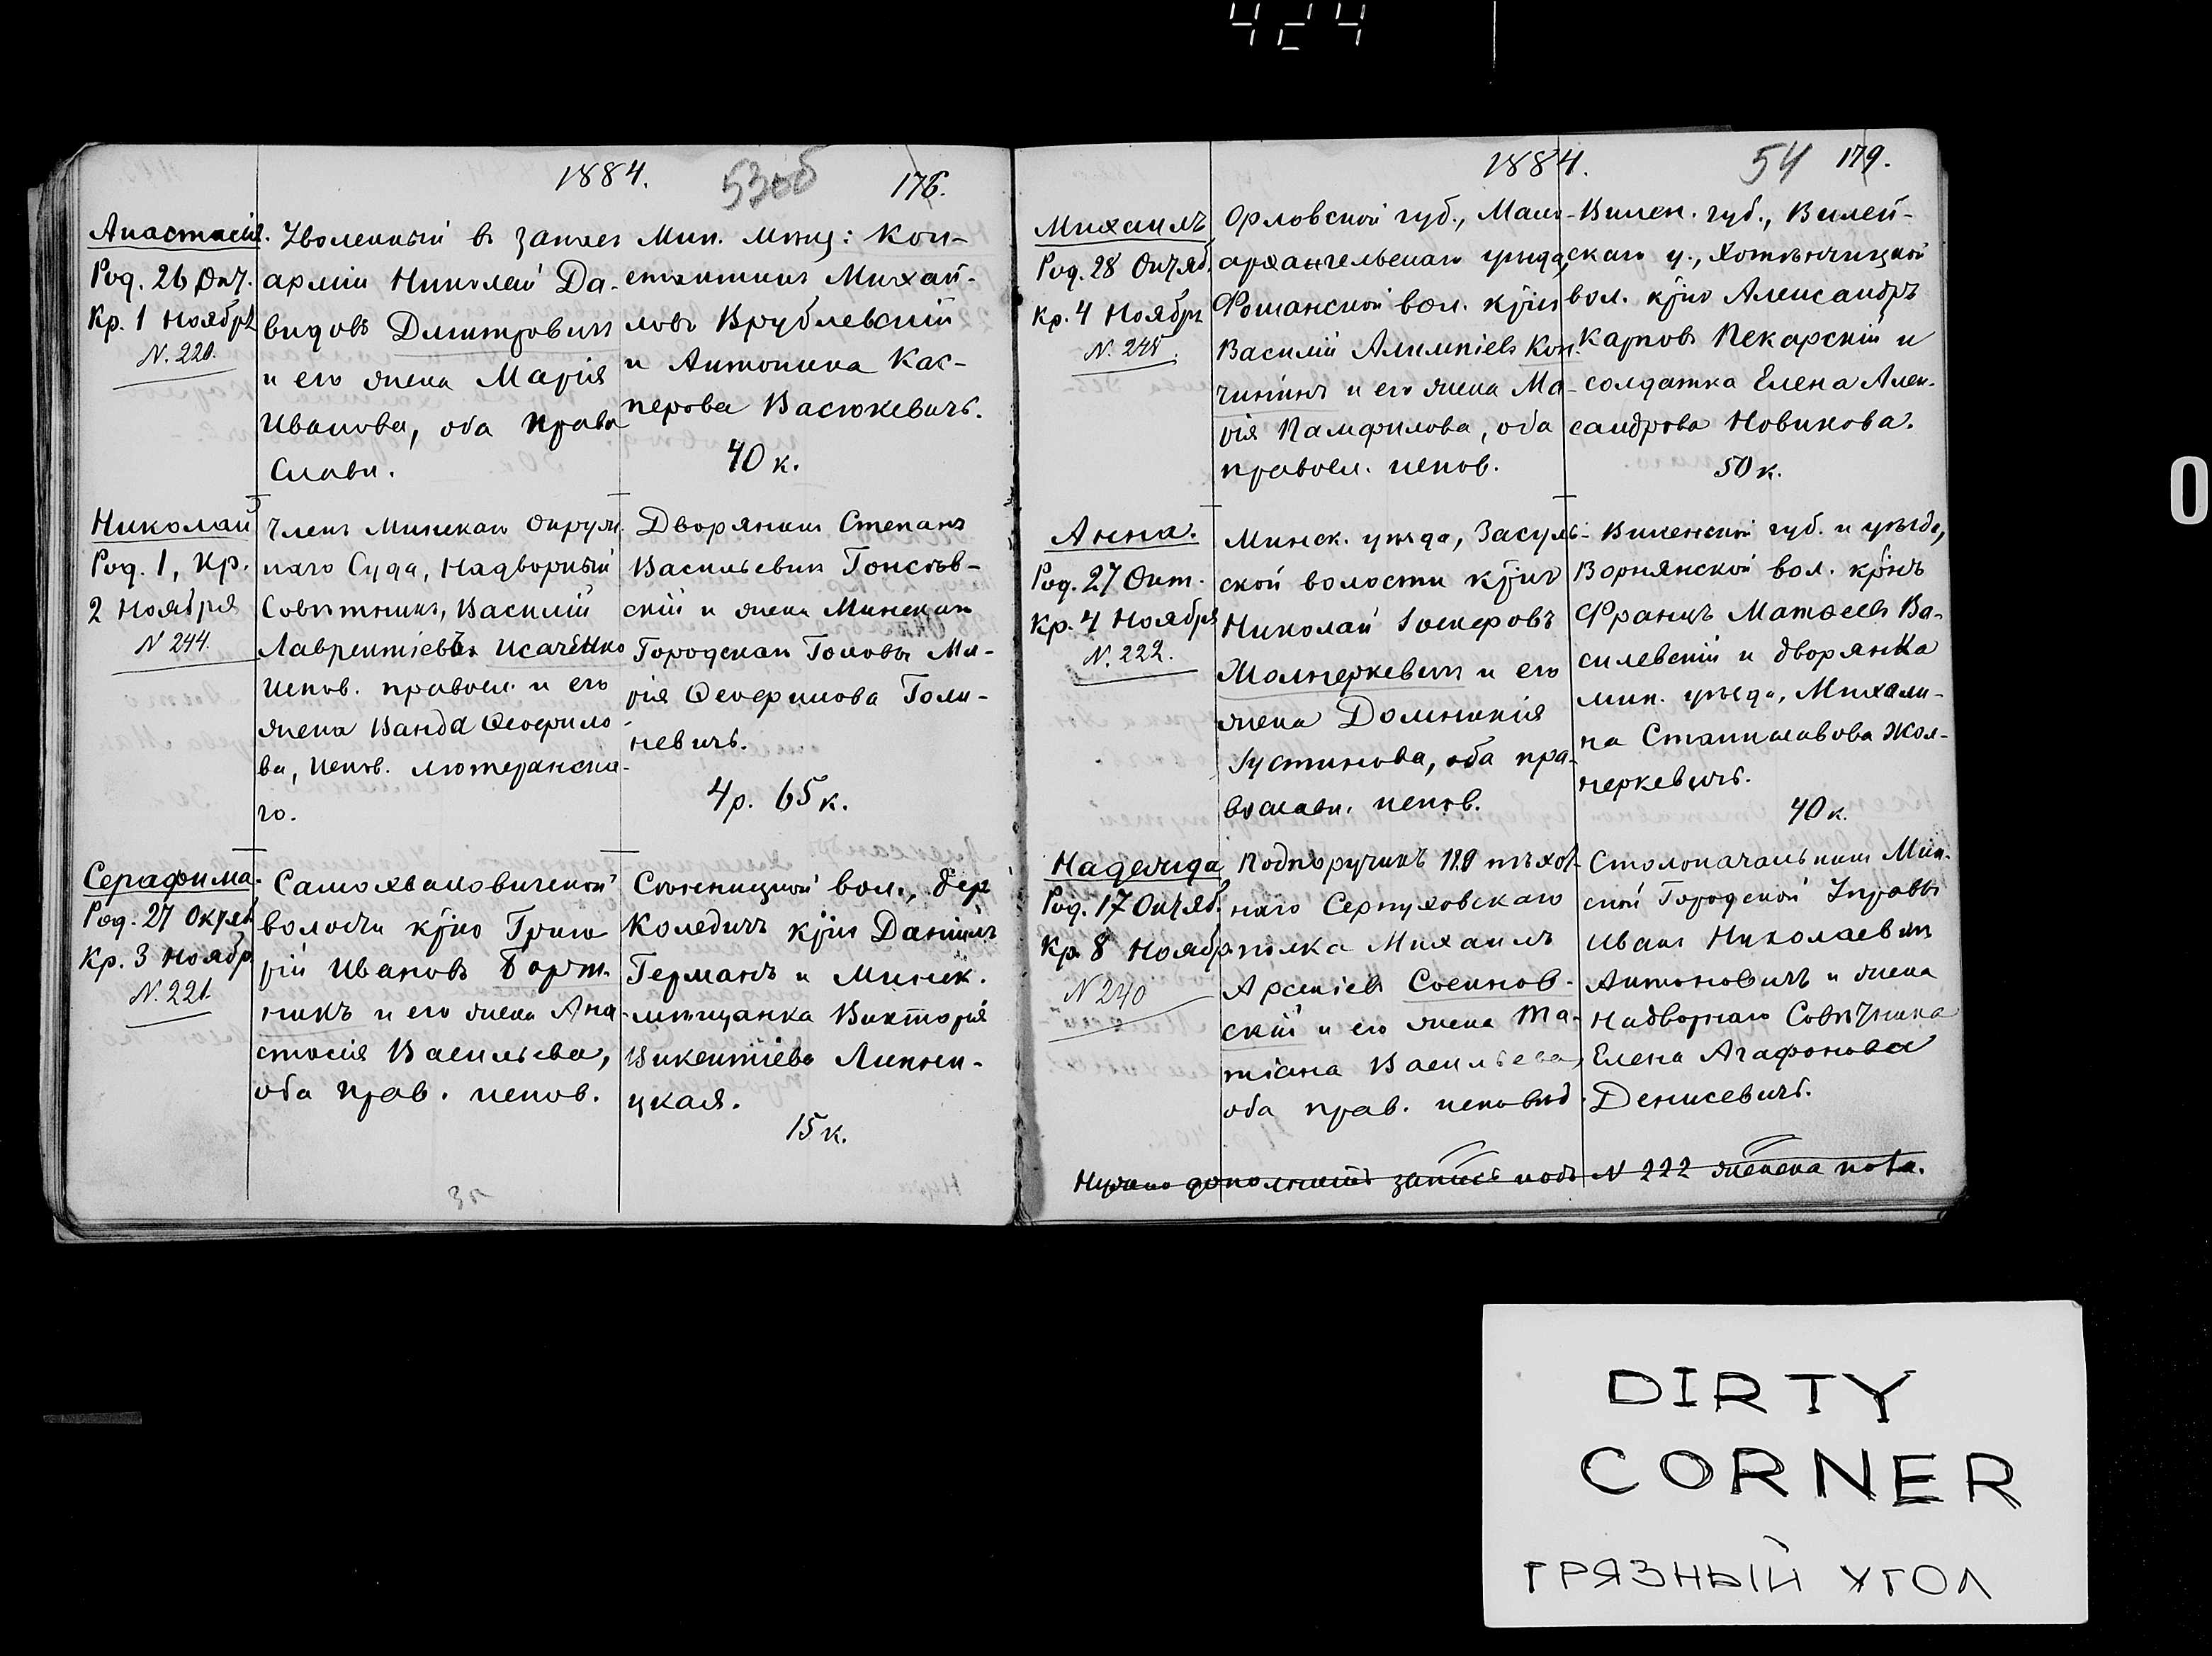 424
1884.
53об
178.
Анастасія.
Род. 26 Окт.
Кр. 1 Ноября
N. 220.
Уволенный въ запасъ
арміи Николай Да-
видовъ Дмитровичъ
и его жена Марія
Иванова, оба право
славн.
Мин. мѣщ: Кон-
стантинъ Михай-
ловъ Врублевскій
и Антонина Кас-
перова Васюкевичъ.
40 к.
Николай
Род. 1, Кр.
2 Ноября
N 244.
Членъ Минскаго Окруж.
наго Суда, Надворный
Совѣтникъ, Василій
Лаврентіевъ Исаченко
испов. правосл. и его
жена Ванда Ѳеофило
ва, испов. лютеранска-
го.
Дворянинъ Степанъ
Васильевичъ Гонсѣв-
скій и жена Минскаго
Городскаго Головы Ма-
рія Ѳеофилова Голи-
невичъ.
4 р. 65 к.
Серафима.
Род. 27 Октяб
Кр. 3 Ноябр
N. 221.
Самохваловичской
волости кр͠нъ Григо
рій Ивановъ Борт-
никъ и его жена Ана
стасія Васильева,
оба прав. испов.
вол., дер
Коледичъ кр͠нъ Даніилъ
Германъ и Минск.
мѣщанка Викторія
Викентіева Липни-
цкая.
15 к.
1884.
54
179.
Михаилъ
Род. 28 Октяб.
Кр. 4 Ноябр
N. 245.
Орловской губ., Мало-
архангельскаго уѣзда,
вол. кр͠нъ
Василій Алимпіевъ Кон-
и его жена Ма-
рія Памфилова, оба
правосл. испов.
Вилен. губ., Вилей-
скаго у., Хотѣнчицкой
вол. кр͠нъ Александръ
Карповъ Пекарскій и
солдатка Елена Алек-
сандрова Новикова.
50 к.
Анна.
Род. 27 Окт.
Кр. 4 Ноября
N. 222.
Минск. уѣзда, Засуль-
ской волости кр͠нъ
Николай Іосифовъ
Жолнеркевичъ и его
жена Домникія
Іустинова, оба пра-
вославн. испов.
Виленской губ. и уѣзда,
Ворнянской вол. кр͠нъ
Францъ Матѳеевъ Ва-
силевскій и дворянка
мин. уѣзда, Михали-
на Станиславова Жол-
неркевичъ.
40 к.
Надежда
Род. 17 Октяб.
Кр. 8 Ноябр
N 240
Подпоручикъ 120 пѣхот-
наго Серпуховскаго
полка Михаилъ
Арсеніевъ Сосинов-
скій и его жена Та-
тіана Васильева,
оба прав. исповѣд.
Столоначальникъ Мин-
ской Городской Управы
Иванъ Николаевичъ
Антоновичъ и жена
Надворнаго Совѣтника
Елена Агафонова
Денисевичъ.
Нужно дополнить запись подъ N 222
DIRTY
CORNER
ГРЯЗНЫЙ УГОЛ